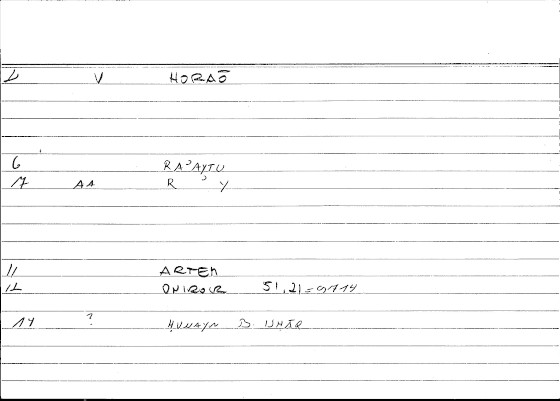 1 V HORAŌ
6 RAʾAYTU
7 AA R ʾ Y
11 ARTEM
12 ONIROCR 51,21=
14 ? ḤUNAYN B ISḤĀQ